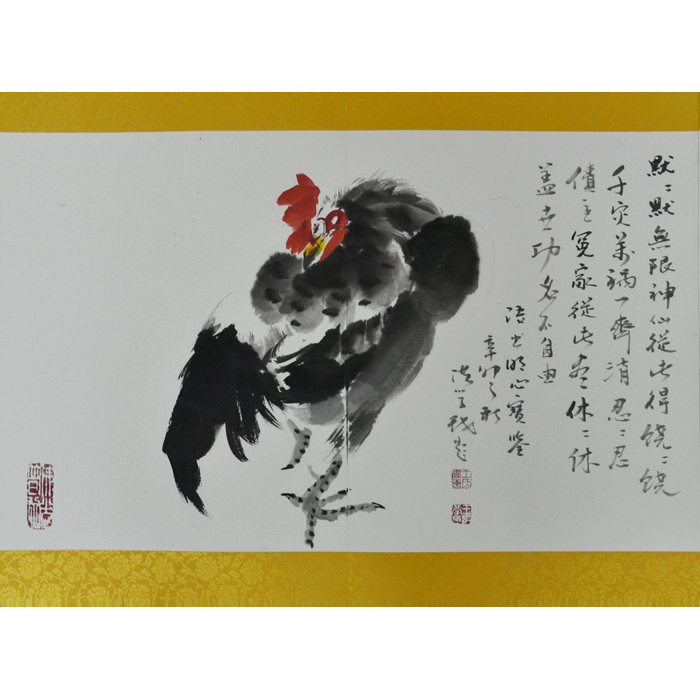 默〻默無限神仙從此得饒〻饒
千灾萬禍一齊消忍〻忍
債主冤家從此盡休〻休
蓋世功名不自由
語出明心寶鑒
辛卯之秋